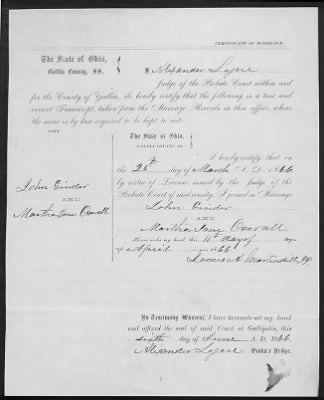 CERTIFICATE OF MARRIAGE.
The State of Ohio,
Gallia County, SS.
I, Alexander
Judge of the Probate Court within and
for the County of Gallia, do hereby certify that the following is a true and
correct Transcript, taken from the Marriage Records in this office, where
the same is by law required to be kept, to wit:
The State of Ohio,
GALLIA COUNTY, SS.
I hereby certify, that on
the 25th day of March A. D. 1866
by virtue of License, issued by the Judge of the
Probate Court of said county, I joined in Marriage
John
AND
Martha Jane Overall
John
AND
Martha Jane Overall
my hand, this 11th day of
of April 1866
In Testimony Whereof, I have hereunto set my hand
and affixed the seal of said Court at Gallipolis, this
sixth day of June A. D. 1866.
Alexander Probate Judge.